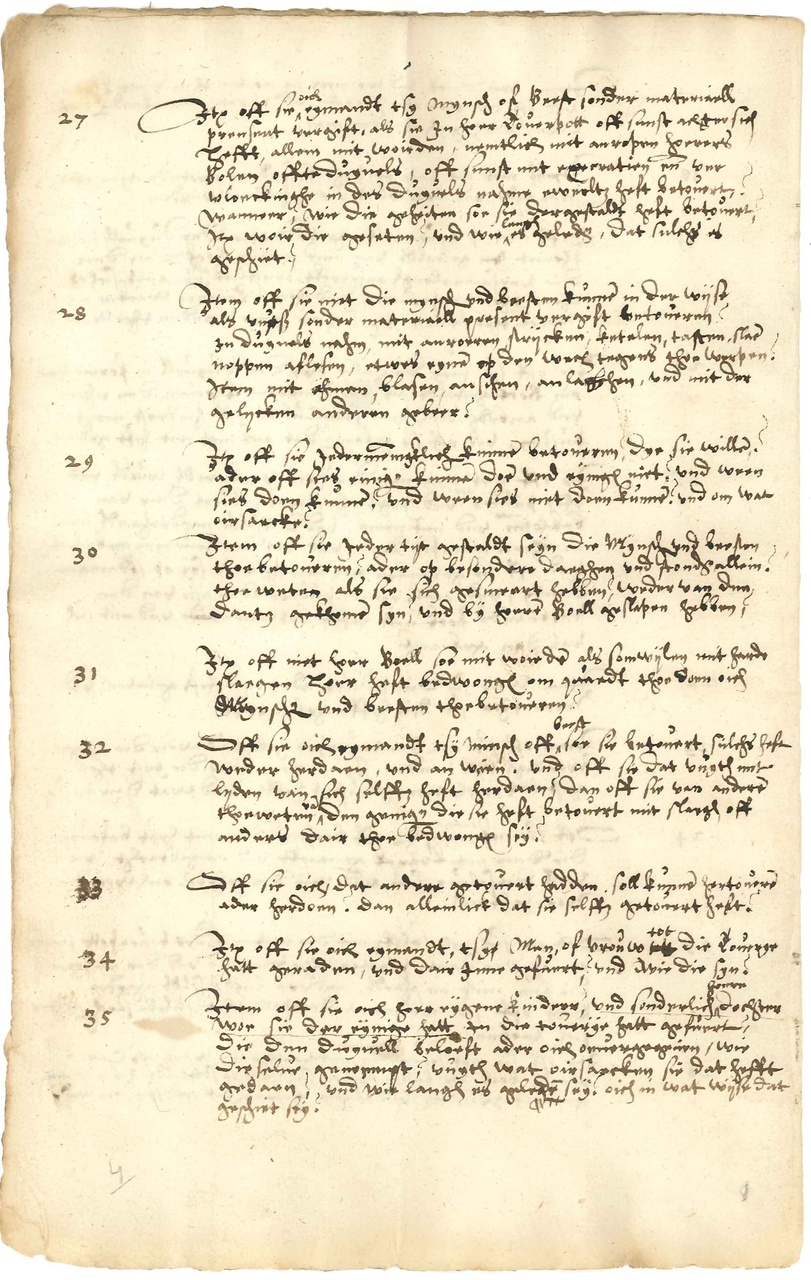 27 Itz off sie oich eymandt tsy Mynsch of Beest sonder materiaell
present vergift, als sie In hoer Toverpott off sunst achter sich
hefft, allein mit woirden, nemtlich mit anropen hoeres
Bolen offte duyvels, off sunst mit execratien en ver
vloeckinghe in des duyvels nahme ewerltz heft betovert?
Wanneer, wie die geheiten soe sie dergestaldt heft betovert,
Itz woir die geseten, und wie lang es geleds, dat sulchs is
geschiet?
28 Item off sie niet die mynsch und beesten kunnen in der wyse
als sonder materiaell present vergift betoveren?
In duyvels nahm, mit anroeren, strycken, ketelen, tasten, slaen
noppen aflesen, etwes eynem op den wech tegens thoe werpen?
Item mit ahmen, blasen, ansehen, anlachhen, und mit der
gelycken anderen gebeer?
29 Itz off sie Jedermenniglich kunnen betoveren, dye sie willen?
ader off sies einigen kunnen doen und eynigh niet? und wem
sies doen kunnen? und wem sies niet doen kunnen? und om wat
oirsaecke?
30 Item off sie Jeder tyt gestaldt seyn die Mynsch und beesten
thoe betoveren, ader op besondere daeghen und stonds allein?
thoe weten als sie sich gesmeart hebben, weder van den
dantz gekhomen syn, und by hoeren Boell geslapen hebben?
31 Itz off niet hoer Boell soe mit woirden als somwylen mit harde
slaegen hoer heft bedwongh om quaedt thoe doen oich
Mynschen und beesten thoe betoveren?
32 Off sie oich eymandt tsy minsch off beest, soe sie betovert, sulchs heft
weder herdaen, und an wien? und off sie dat uuyth mit
lyden van sich selffs heft herdaen? dan off sie van anderen
thoe weten van den genigen die sie heft betovert mit slaegh off
anders dair thoe bedwongh sey?
33 Off sie oich dat andere getovert hadden soll kunnen hertoveren
ader herdoen? dan alleinlick dat sie selffs getovert heft?
34 Itz off sie oich eymandt, tsye Man, of vrouw tot die Toverye
hatt geraden, und dair Inne gefuert, und wie die syn?
35 Item off sie oich hoer eygene kinderr, und sonderlich hoere dochter
woe sie der eynige hatt In die toverye hatt gefuert,
die den duyvell beloeft ader oich overgegeven, wie
dieselve genoempt, uuyth wat oirsaecken sie dat hefft
gedaen, und wie langh es geleden sey? oich in wat wyse dat
geschiet sey?
4